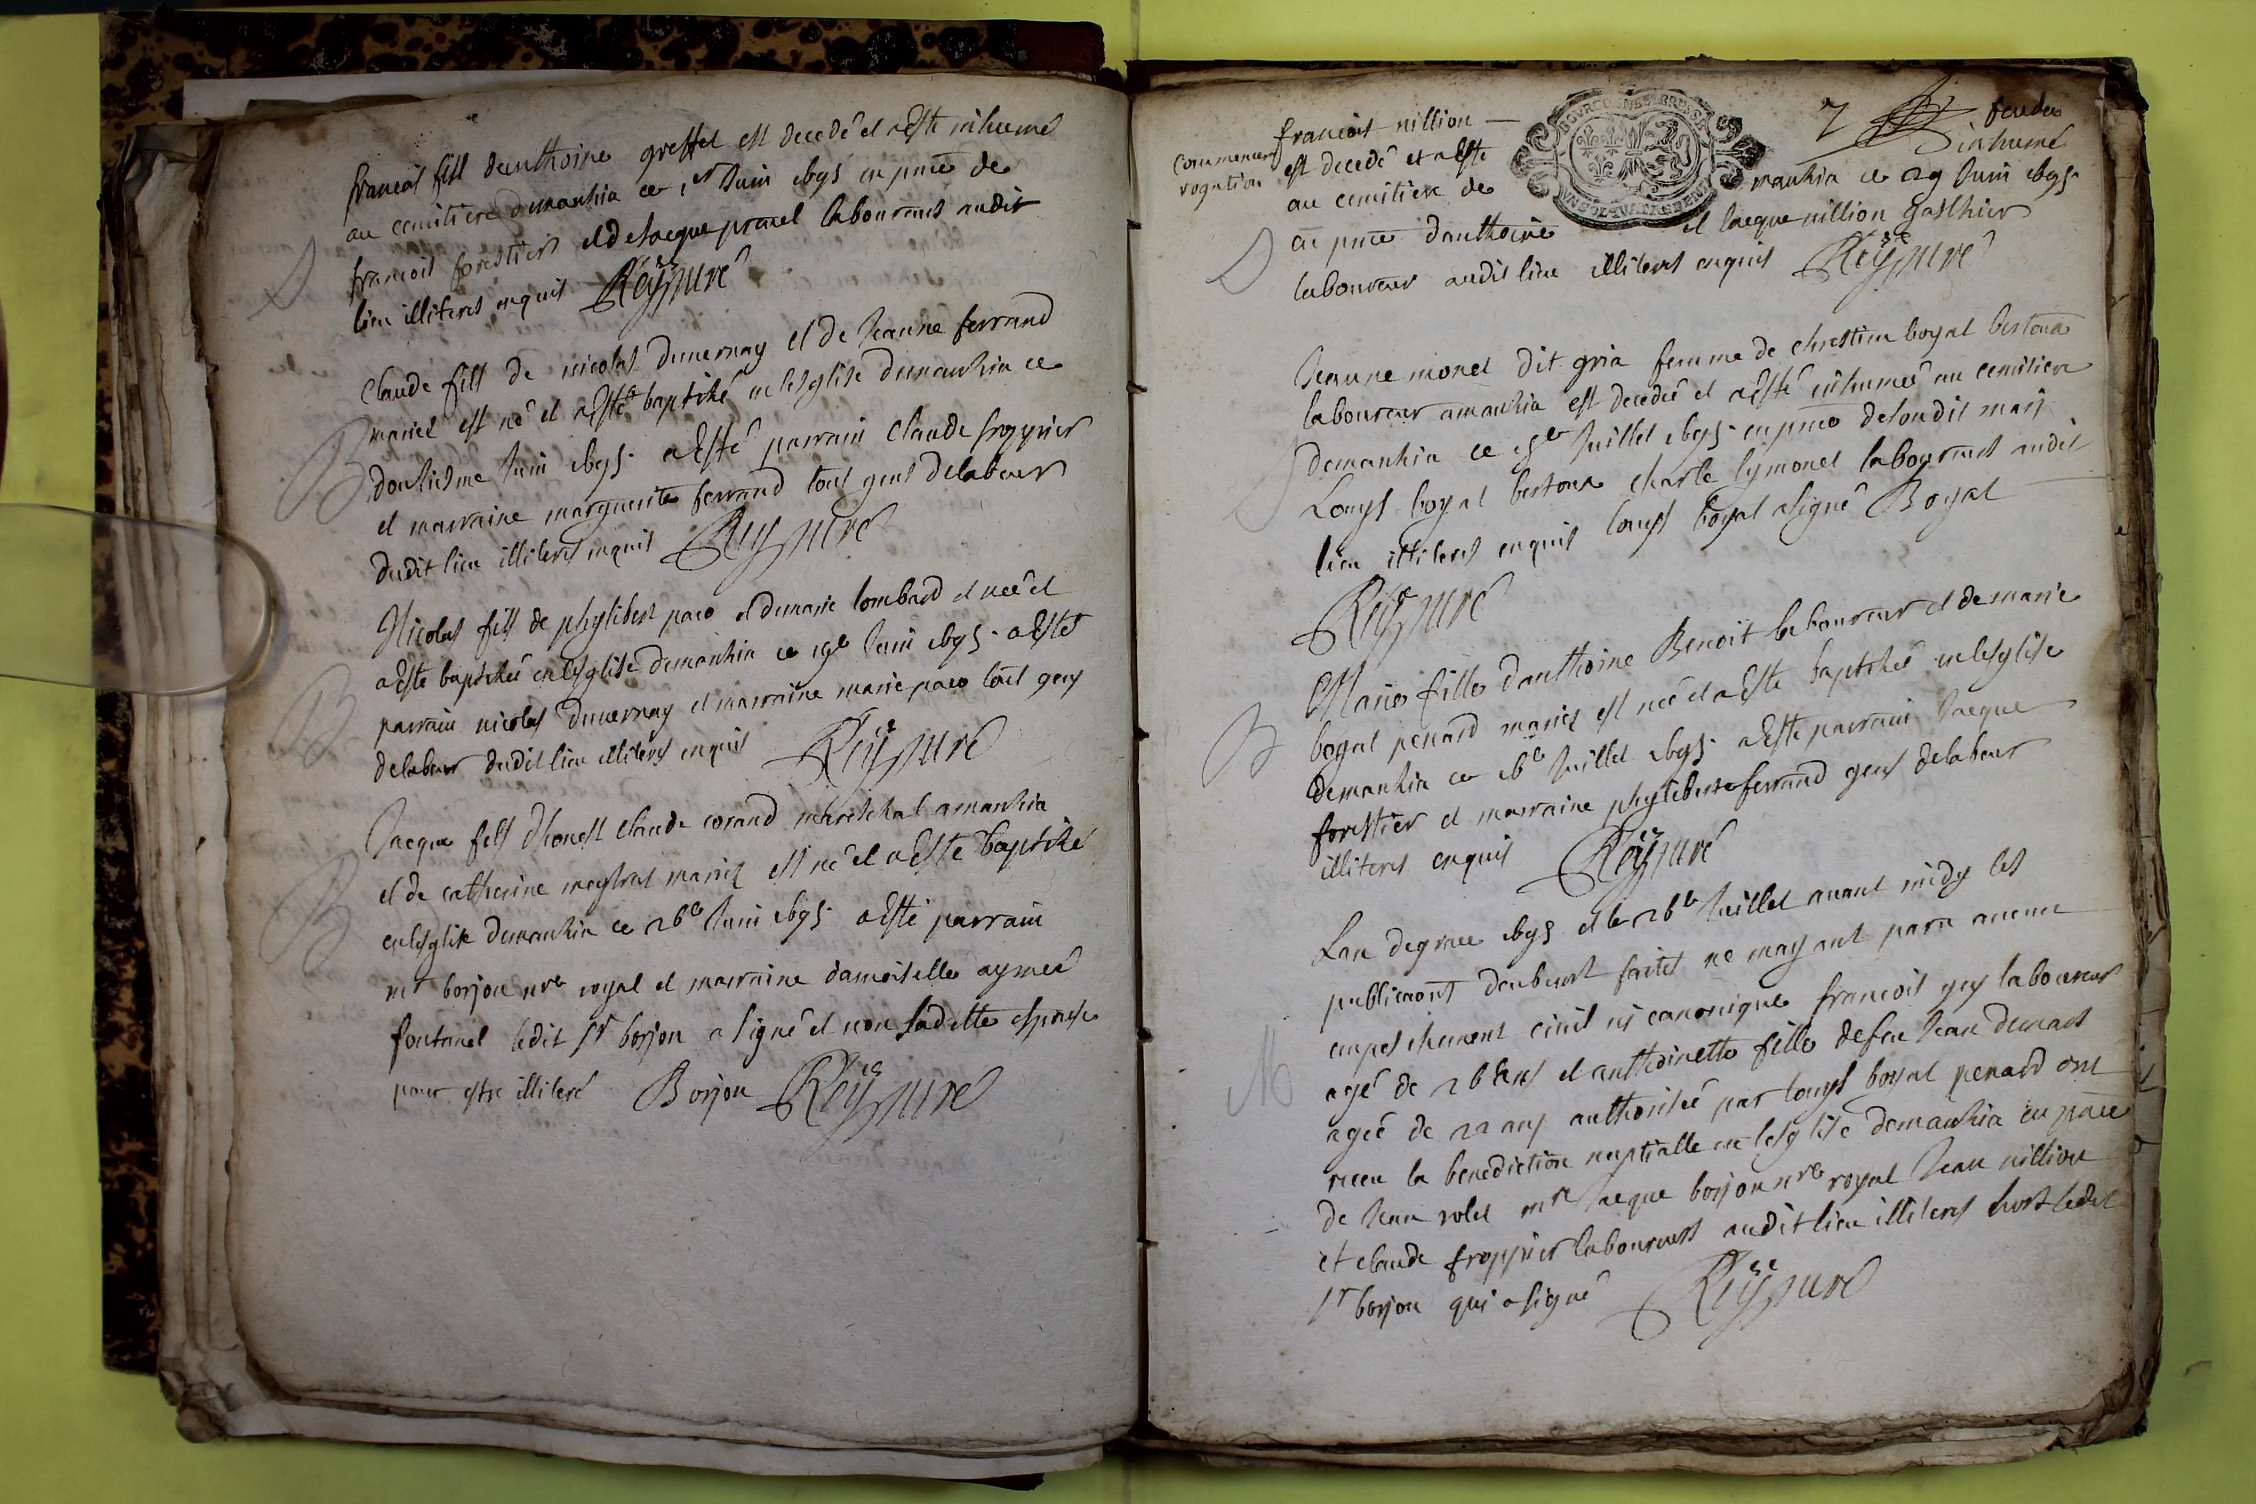 francois fils danthoine greffet est decedé et a esté inhumé
au cemitiere demanzia ce 1er Juin ibc95 en pnce de
francois forestier et de Jacque pranel laboureurs audit
lieu illiteres enquis Reÿ curé
D
Claude fils de nicolas duuernay et de Jeanne ferrand
mariez est né et a esté baptizé en lesglise demanzia ce
douziesme Juin ibc95. a esté parrain claude froppier
et marraine marguerite ferrand tous gens delabeur
dudit lieu illiteres enquis Reÿ curé
B
Nicolas fils de phylibert paco et demarie lombard et née et
a esté baptizé en lesglise demanzia ce Juin ibc95. a esté
parrain nicolas duuernay et marraine marie paco tous gens
delabeur dudit lieu illiteres enquis Reÿ curé
B
Jacque fils dhonest claude corand mareschal amanzia
et de catherine mariez est né et a esté baptizé
en lesglise demanzia ce 26e Juin ibc95. a esté parrain
mr borjon nre royal et marraine damoiselle aymeé
fontanel ledit Sr borjon a signé et non ladette espouse
pour estre illiteré Borjon Reÿ curé
B
7
francois nillion
commencer
rogation
est decedé et a esté inhumé
au cemitiere de manzia ce 29 Juin ibc95.
en pnce danthoine et Jacque nillion
laboureur audit lieu illiteres enquis Reÿ curé
D
BOVRGOGNE & BRESSE
Jeanne monet dit gria femme de chrestien boyat bertona
laboureur amanzia est decedeé et a esté inhumeé au cemitiere
demanzia ce Juillet ibc95. en pnce desondit mari
Louys boyat bertona charle lymonet laboureurs audit
lieu illiteres enquis louys boyat a signé Boyat
Reÿ curé
D
Marie fille danthoine Benoit laboureur et de marie
boyat penard mariez est neé et a esté baptizeé en lesglise
demanzia ce Juillet ibc95. a esté parrain Jacque
forestier et marraine phyliberte ferrand gens delabeur
illiteres enquis Reÿ curé
B
Lan degrace ibc95 et le 26e Juillet auant midy les
publicaons deubment faites ne mayant paru aucun
empeschement ciuil ni canonique francois gey laboureur
agé de 26 ans et anthoinette fille defeu Jean
ageé de 22 ans authoriseé par louys boyat penard ont
receu la benediction nuptialle en lesglise demanzia en pnce
de Jean volet mre Jacque borjon nre royal Jean nillion
et claude froppier laboureurs audit lieu illiteres hors ledit
Sr borjon qui a signé Reÿ curé
M